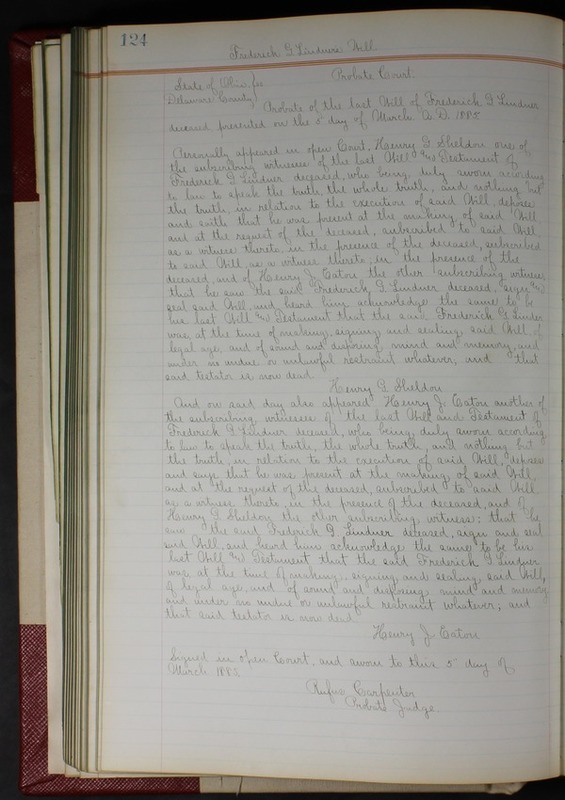 124
Frederick G Lindners Will.
Probate Court.
State of Ohio, ss
Delaware County
Probate of the last Will of Frederick G Lindner
deceased presented on the 5" day of March. A.D. 1885
Personally appeared in open Court, Henry G. Sheldon one of
the subscribing witnesses of the last Will and Testament of
Frederick G Lindner deceased, who being duly sworn according
to law to speak the truth the whole truth, and nothing but
the truth, in relation to the execution of said Will, deposes
and saith that he was present at the making of said Will
and at the request of the deceased, subscribed to said Will
as a witness thereto, in the presence of the deceased, subscribed
to said Will as a witness thereto; in the presence of the
deceased, and of Henry J. Eaton the other subscribing witness,
that he saw the said Frederick G Lindner deceased, sign and
seal said Will, and heard him acknowledge the same to be
his last Will and Testament that the said Frederick G Linder
was, at the time of making, signing and sealing, said Will, of
legal age, and of sound and disposing mind and memory, and
under no undue or unlawful restraint whatever; and that
said testator is now dead
Henry G. Sheldon
And on said day also appeared Henry J. Eaton another of
the subscribing witnesses of the last Will and Testament of
Frederick G Lindner deceased, who being, duly sworn according
to law to speak the truth, the whole truth, and nothing but
the truth, in relation to the execution of said Will, deposes
and says that he was present at the making of said Will,
and at the request of the deceased, subscribed to said Will
as a witness thereto, in the presence of the deceased, and of
Henry G Sheldon, the other subscribing witness: that he
saw the said Frederick G Lindner deceased, sign and seal
said Will, and heard him acknowledge the same to be his
last Will and Testament that the said Frederick G Lindner
was, at the time of making, signing, and sealing said Will,
of legal age, and of sound and disposing mind and memory
and under no undue or unlawful restraint whatever; and
that said testator is now dead
Henry J Eaton
Signed in open Court, and sworn to this 5" day of
March 1885
Rufus Carpenter
Probate Judge.